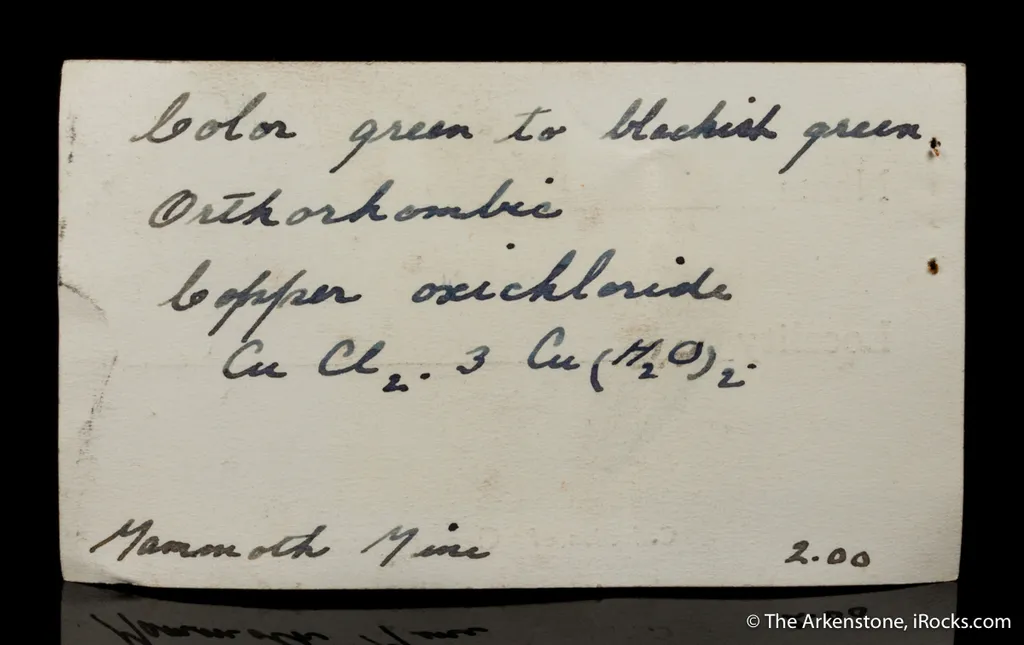 Color green to blackish green.
Orthorhombic
Copper oxichloride
Cu Cl₂. 3 Cu(H₂O)₂.
Mammoth Mine 2.00
© The Arkenstone, iRocks.com